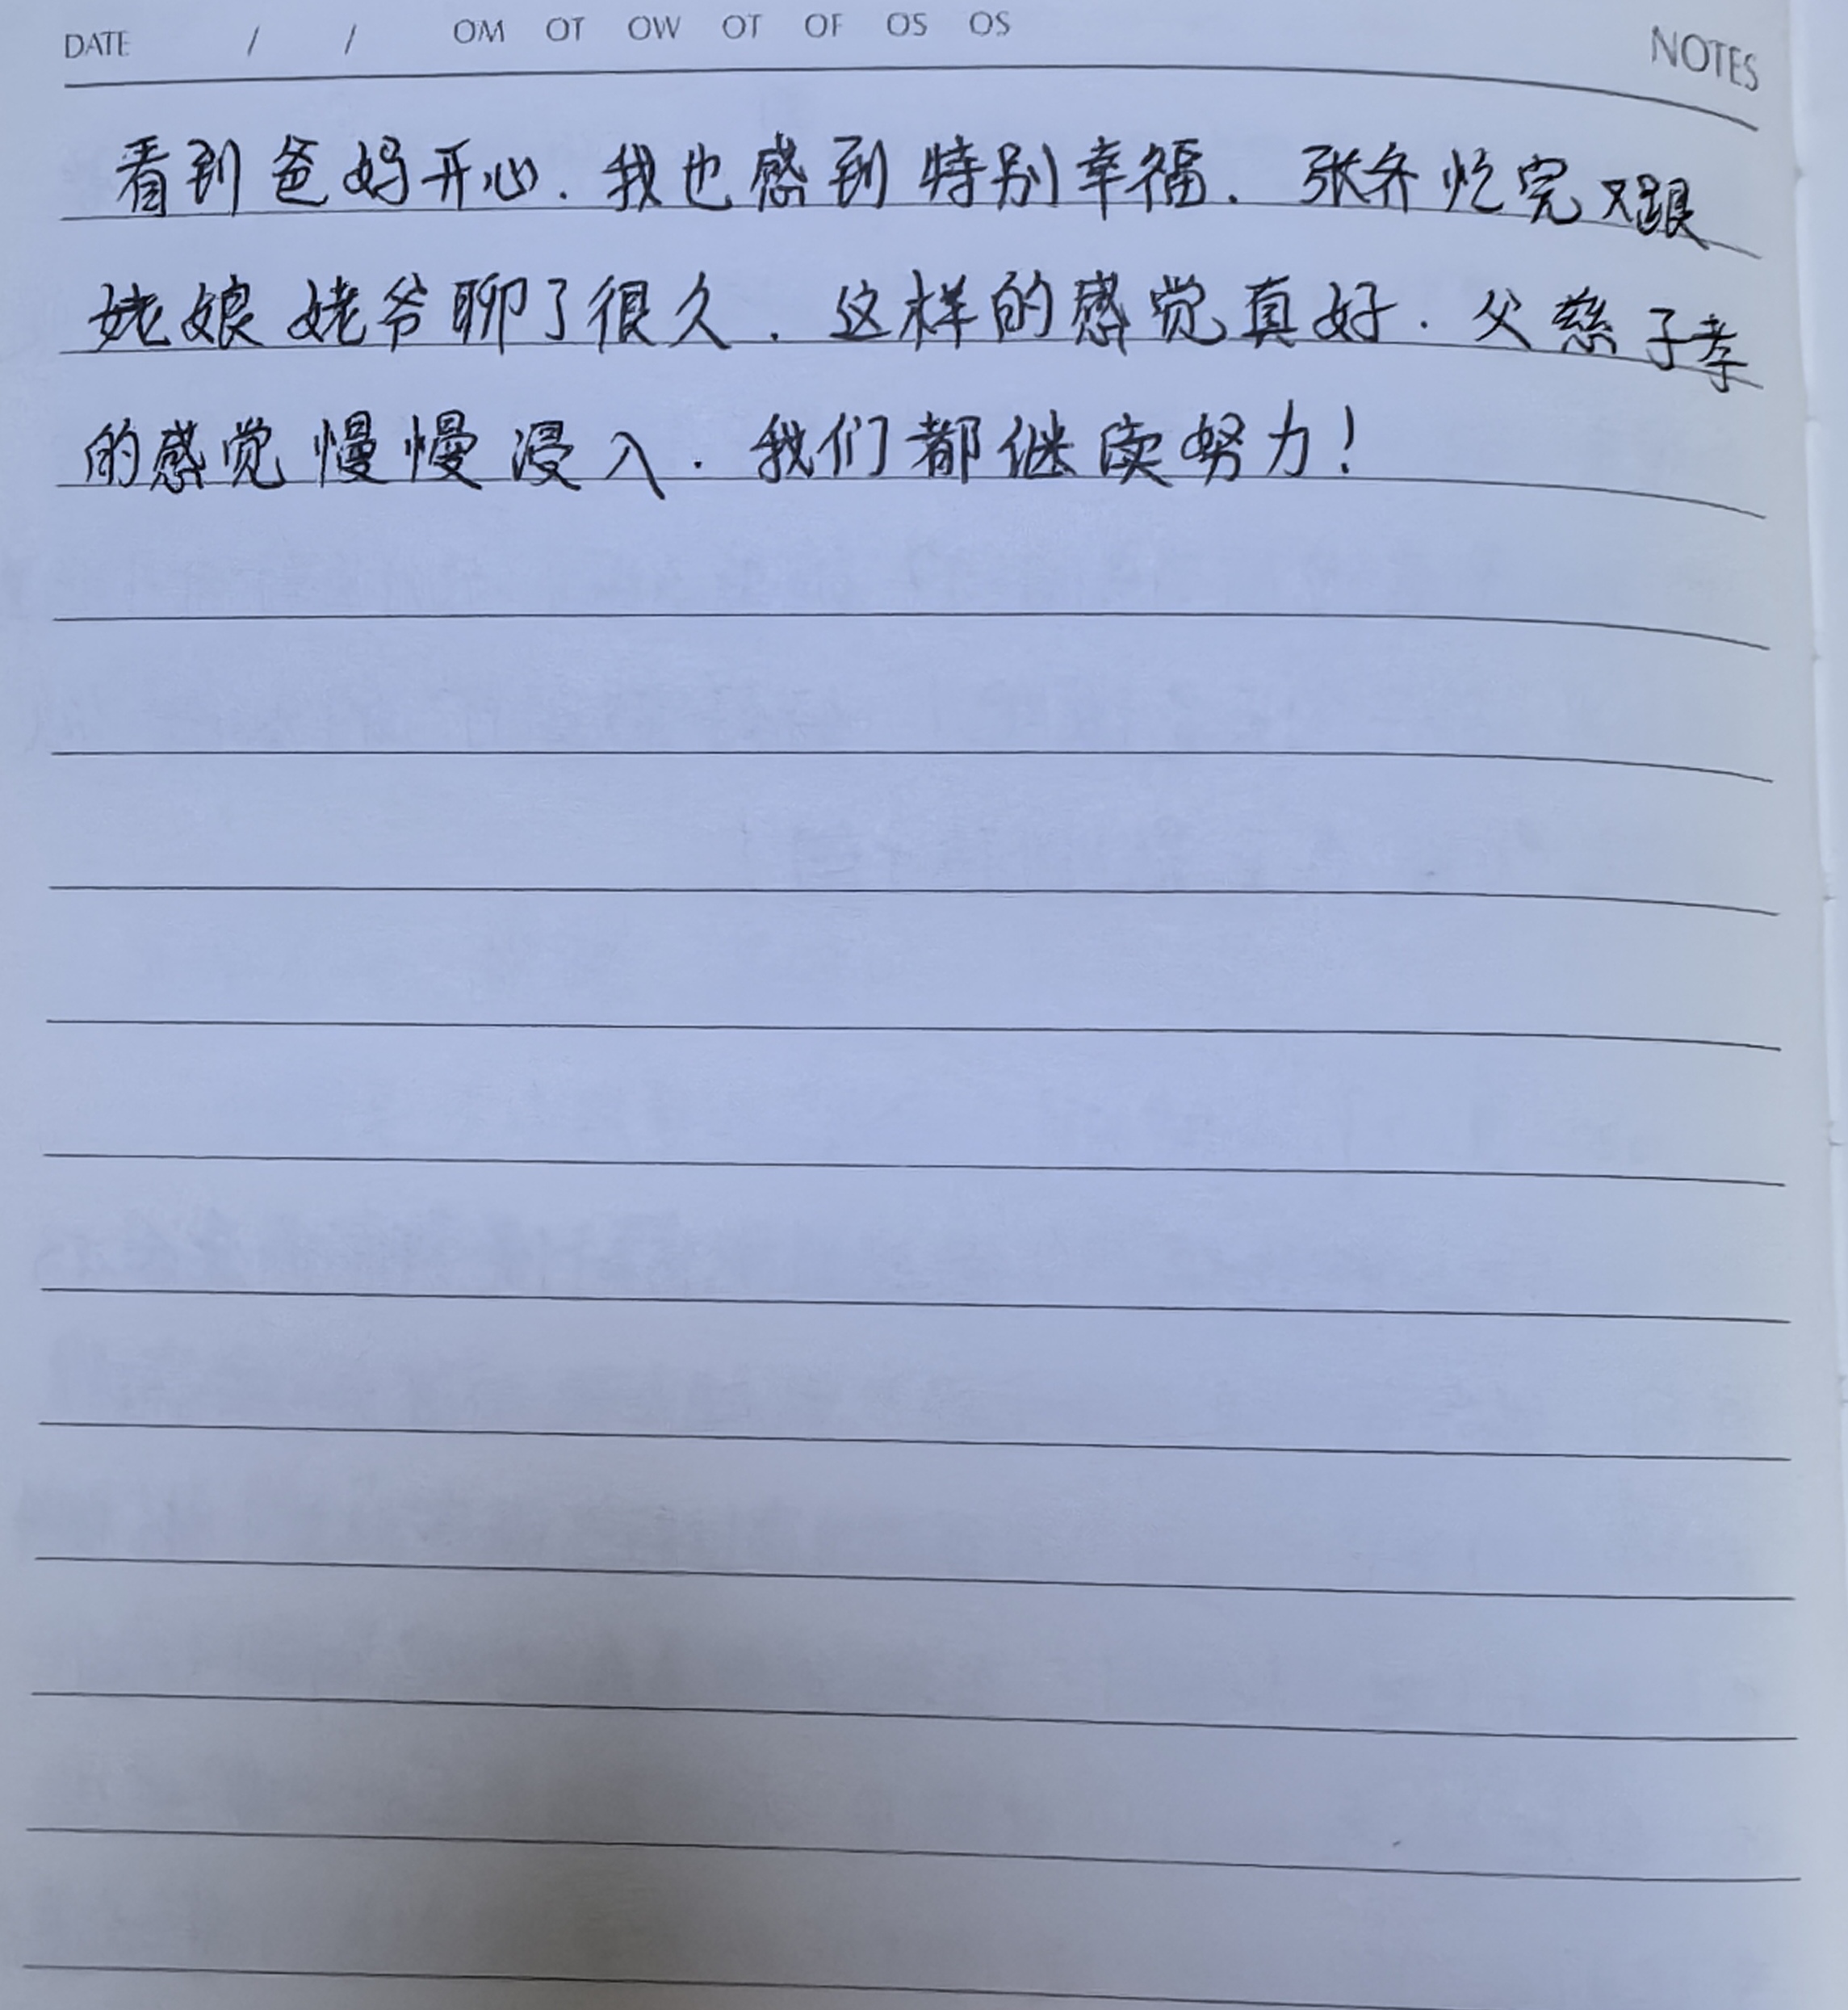 DATE / / OM OT OW OT OF OS OS NOTES
看到爸妈开心.我也感到特别幸福.张乔忙完又跟
姥娘姥爷聊了很久.这样的感觉真好.父慈子孝
的感觉慢慢浸入.我们都继续努力!